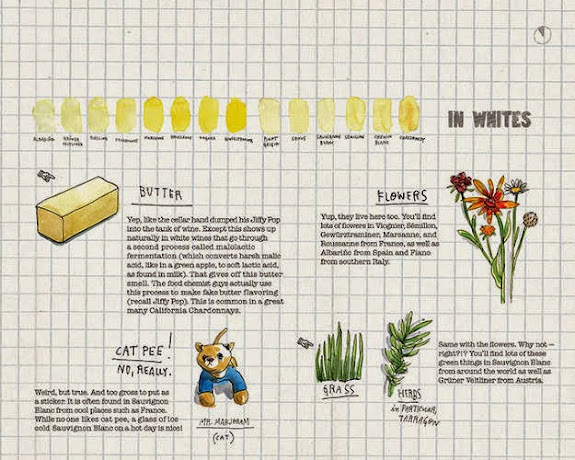 IN WHITES
ALBARIÑO
GRÜNER VELTLINER
RIESLING
MARSANNE
ROUSSANNE
PINOT GRIGIO
SAUVIGNON BLANC
SÉMILLON
CHENIN BLANC
CHARDONNAY
BUTTER
Yep, like the cellar hand dumped his Jiffy Pop
into the tank of wine. Except this shows up
naturally in white wines that go through
a second process called malolactic
fermentation (which converts harsh malic
acid, like in a green apple, to soft lactic acid,
as found in milk). That gives off this butter
smell. The food chemist guys actually use
this process to make fake butter flavoring
(recall Jiffy Pop). This is common in a great
many California Chardonnays.
FLOWERS
Yup, they live here too. You'll find
lots of flowers in Viognier, Sémillon,
Gewürztraminer, Marsanne, and
Roussanne from France, as well as
Albariño from Spain and Fiano
from southern Italy.
CAT PEE!
NO, REALLY.
Weird, but true. And too gross to put as
a sticker. It is often found in Sauvignon
Blanc from cool places such as France.
While no one likes cat pee, a glass of ice
cold Sauvignon Blanc on a hot day is nice!
MR. MARJORAM
(CAT)
GRASS
HERBS
in PARTICULAR,
TARRAGON
Same with the flowers. Why not—
right?!? You'll find lots of these
green things in Sauvignon Blanc
from around the world as well as
Grüner Veltliner from Austria.